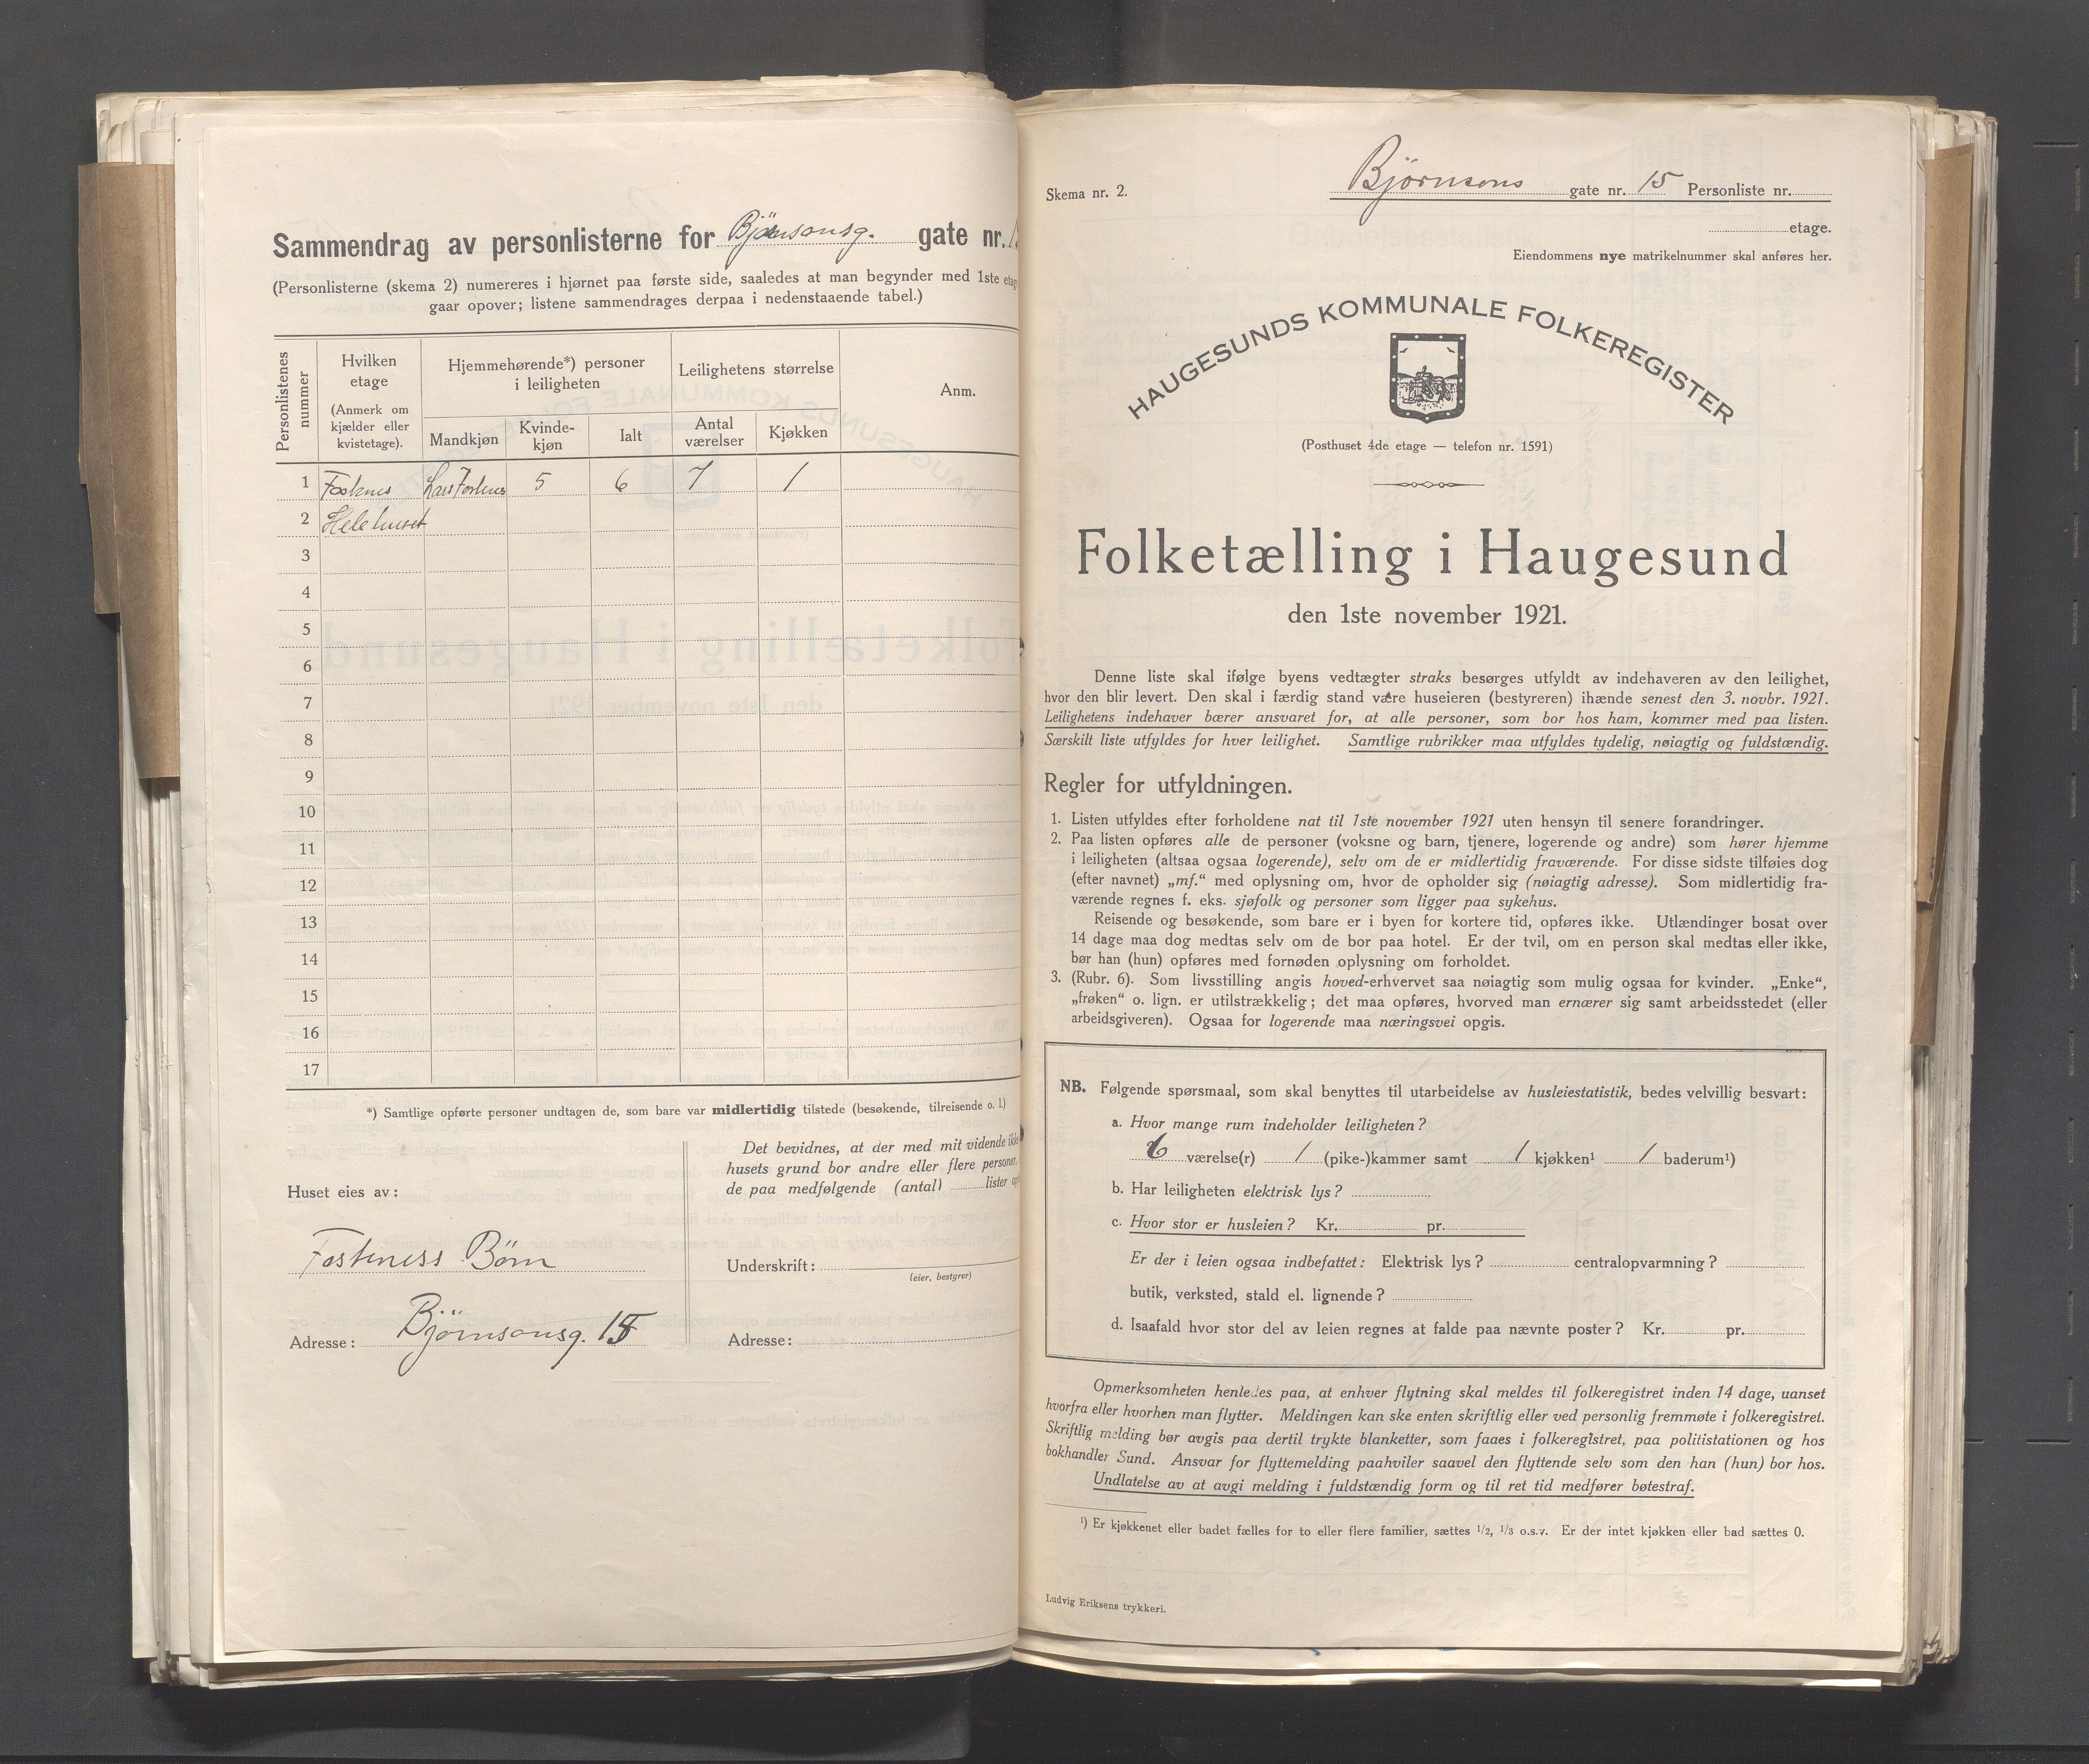 Sammendrag av personlisterne for Björnsonsg. gate nr. 1
(Personlisterne (skema 2) numereres i hjørnet paa første side, saaledes at man begynder med 1ste etag
gaar opover; listene sammendrages derpaa i nedenstaaende tabel.)
Personlistenes nummer
Hvilken etage (Anmerk om kjælder eller kvistetage).
Hjemmehørende*) personer i leiligheten
Leilighetens størrelse
Anm.
Mandkjøn
Kvinde-kjøn
Ialt
Antal værelser
Kjøkken
1 Fosknes Lars Fosknes 5 6 7 1
2 Hele huset
3
4
5
6
7
8
9
10
11
12
13
14
15
16
17
*) Samtlige opførte personer undtagen de, som bare var midlertidig tilstede (besøkende, tilreisende o. l.)
Huset eies av:
Foskness Börn
Adresse: Björnsonsg. 15
Det bevidnes, at der med mit vidende ikke
husets grund bor andre eller flere personer,
de paa medfølgende (antal) lister op
Underskrift:
(eier, bestyrer)
Adresse:
Skema nr. 2.
Björnsons gate nr. 15 Personliste nr.
etage.
Eiendommens nye matrikelnummer skal anføres her.
HAUGESUNDS KOMMUNALE FOLKEREGISTER
(Posthuset 4de etage — telefon nr. 1591)
Folketælling i Haugesund
den 1ste november 1921.
Denne liste skal ifølge byens vedtægter straks besørges utfyldt av indehaveren av den leilighet,
hvor den blir levert. Den skal i færdig stand være huseieren (bestyreren) ihænde senest den 3. novbr. 1921.
Leilighetens indehaver bærer ansvaret for, at alle personer, som bor hos ham, kommer med paa listen.
Særskilt liste utfyldes for hver leilighet. Samtlige rubrikker maa utfyldes tydelig, nøiagtig og fuldstændig.
Regler for utfyldningen.
1. Listen utfyldes efter forholdene nat til 1ste november 1921 uten hensyn til senere forandringer.
2. Paa listen opføres alle de personer (voksne og barn, tjenere, logerende og andre) som hører hjemme
i leiligheten (altsaa ogsaa logerende), selv om de er midlertidig fraværende. For disse sidste tilføies dog
(efter navnet) „mf.“ med oplysning om, hvor de opholder sig (nøiagtig adresse). Som midlertidig fra-
værende regnes f. eks. sjøfolk og personer som ligger paa sykehus.
Reisende og besøkende, som bare er i byen for kortere tid, opføres ikke. Utlændinger bosat over
14 dage maa dog medtas selv om de bor paa hotel. Er der tvil, om en person skal medtas eller ikke,
bør han (hun) opføres med fornøden oplysning om forholdet.
3. (Rubr. 6). Som livsstilling angis hoved-erhvervet saa nøiagtig som mulig ogsaa for kvinder. „Enke“,
„frøken“ o. lign. er utilstrækkelig; det maa opføres, hvorved man ernærer sig samt arbeidsstedet (eller
arbeidsgiveren). Ogsaa for logerende maa næringsvei opgis.
NB. Følgende spørsmaal, som skal benyttes til utarbeidelse av husleiestatistik, bedes velvillig besvart:
a. Hvor mange rum indeholder leiligheten?
6 værelse(r) 1 (pike-)kammer samt 1 kjøkken¹ 1 baderum¹)
b. Har leiligheten elektrisk lys?
c. Hvor stor er husleien? Kr. pr.
Er der i leien ogsaa indbefattet: Elektrisk lys? centralopvarmning?
butik, verksted, stald el. lignende?
d. Isaafald hvor stor del av leien regnes at falde paa nævnte poster? Kr. pr.
Opmerksomheten henledes paa, at enhver flytning skal meldes til folkeregistret inden 14 dage, uanset
hvorfra eller hvorhen man flytter. Meldingen kan ske enten skriftlig eller ved personlig fremmøte i folkeregistret.
Skriftlig melding bør avgis paa dertil trykte blanketter, som faaes i folkeregistret, paa politistationen og hos
bokhandler Sund. Ansvar for flyttemelding paahviler saavel den flyttende selv som den han (hun) bor hos.
Undlatelse av at avgi melding i fuldstændig form og til ret tid medfører bøtestraf.
¹) Er kjøkkenet eller badet fælles for to eller flere familier, sættes 1/2, 1/3 o.s.v. Er der intet kjøkken eller bad sættes 0.
Ludvig Eriksens trykkeri.